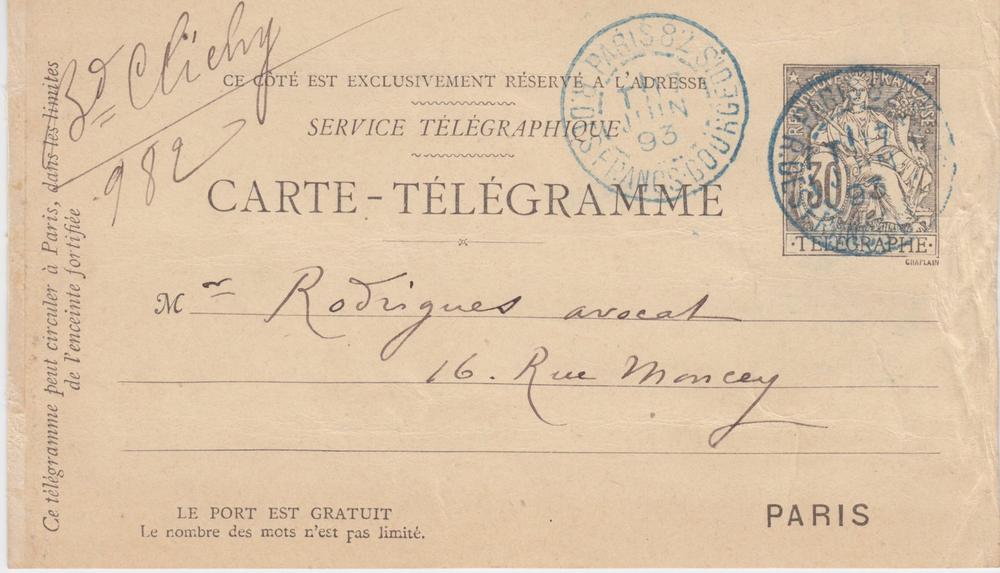 Bd Clichy
982
CE CÔTÉ EST EXCLUSIVEMENT RÉSERVÉ A L'ADRESSE
SERVICE TÉLÉGRAPHIQUE
CARTE-TÉLÉGRAMME
PARIS 82
JUIN
93
R. DES FRANCS-BOURGEOIS
REPUBLIQUE FRANÇAISE
30
TÉLÉGRAPHE
CHAPLAIN
93
Mr Rodrigues avocat
16. Rue Moncey
Ce télégramme peut circuler à Paris, dans les limites
de l'enceinte fortifiée
LE PORT EST GRATUIT
Le nombre des mots n'est pas limité.
PARIS